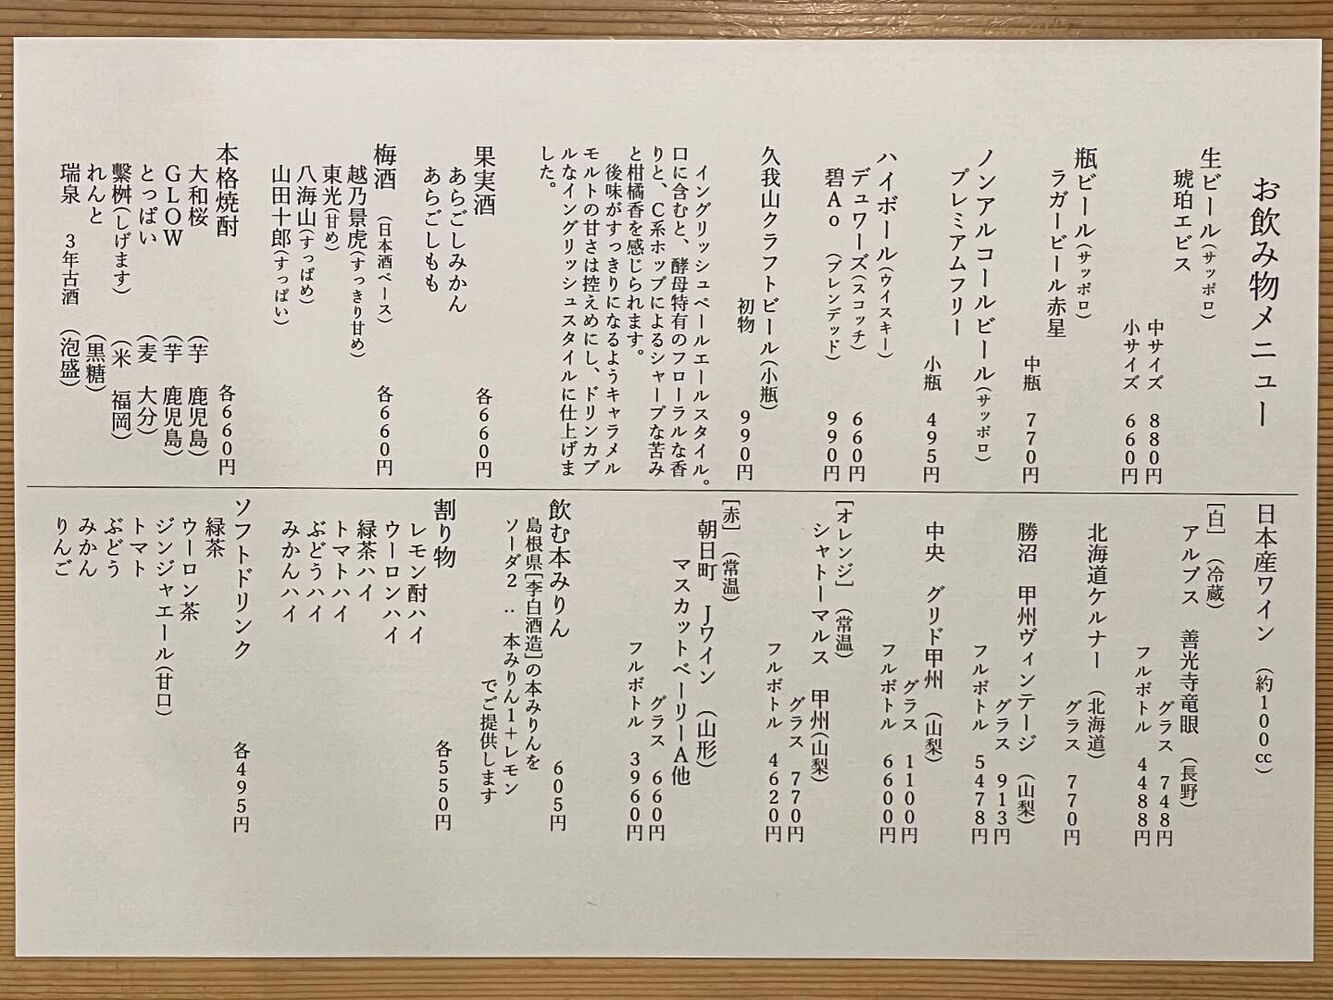 お飲み物メニュー
生ビール(サッポロ)
琥珀エビス
中サイズ 880円
小サイズ 660円
瓶ビール(サッポロ)
ラガービール赤星
中瓶 770円
ノンアルコールビール(サッポロ)
プレミアムフリー
小瓶 495円
ハイボール(ウイスキー)
デュワーズ(スコッチ) 660円
碧Ao (ブレンデッド) 990円
久我山クラフトビール(小瓶)
初物 990円
イングリッシュペールエールスタイル。
口に含むと、酵母特有のフローラルな香
りと、C系ホップによるシャープな苦み
と柑橘香を感じられます。
後味がすっきりになるようキャラメル
モルトの甘さは控えめにし、ドリンカブ
ルなイングリッシュスタイルに仕上げま
した。
果実酒 各660円
あらごしみかん
あらごしもも
梅酒 (日本酒ベース) 各660円
越乃景虎(すっきり甘め)
東光(甘め)
八海山(すっぱめ)
山田十郎(すっぱい)
本格焼酎 各660円
大和桜 (芋 鹿児島)
GLOW (芋 鹿児島)
とっぱい (麦 大分)
繫桝(しげます) (米 福岡)
れんと (黒糖)
瑞泉 3年古酒 (泡盛)
日本産ワイン (約100cc)
[白] (冷蔵)
アルプス 善光寺竜眼 (長野)
グラス 748円
フルボトル 4488円
北海道ケルナー (北海道)
グラス 770円
勝沼 甲州ヴィンテージ (山梨)
グラス 913円
フルボトル 5478円
中央 グリド甲州 (山梨)
グラス 1100円
フルボトル 6600円
[オレンジ] (常温)
シャトーマルス 甲州(山梨)
グラス 770円
フルボトル 4620円
[赤] (常温)
朝日町 Jワイン (山形)
マスカットベーリーA他
グラス 660円
フルボトル 3960円
飲む本みりん 605円
島根県[李白酒造]の本みりんを
ソーダ2：本みりん1+レモン
でご提供します
割り物 各550円
レモン酎ハイ
ウーロンハイ
緑茶ハイ
トマトハイ
ぶどうハイ
みかんハイ
ソフトドリンク 各495円
緑茶
ウーロン茶
ジンジャエール(甘口)
トマト
ぶどう
みかん
りんご